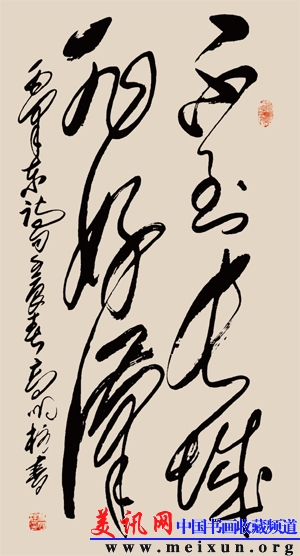 不到长城
非好漢
毛泽东诗句
美讯网 中国书画收藏频道
www.meixun.org